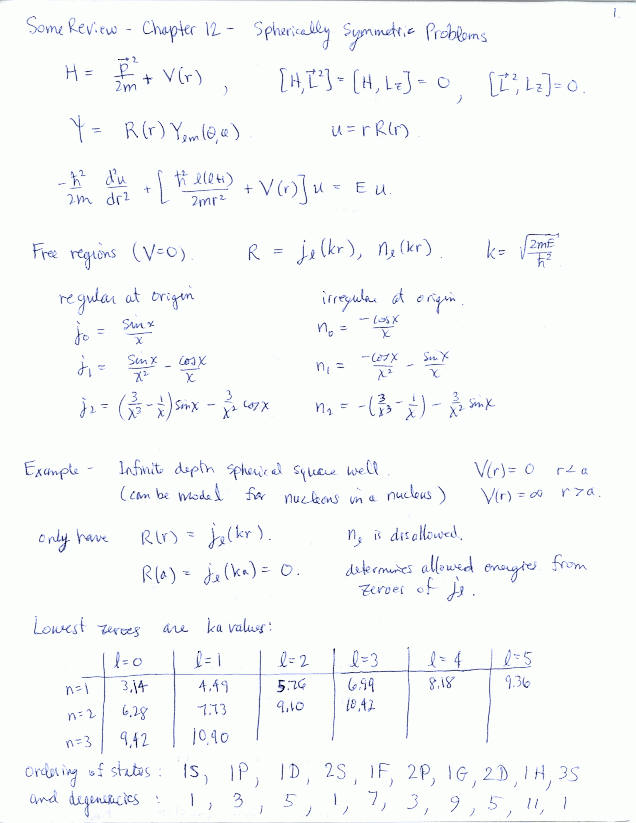 1.
Some Review - Chapter 12 - Spherically Symmetric Problems
H = p⃗²/2m + V(r) , [H, L⃗²] = [H, Lz] = 0 , [L⃗², Lz] = 0.
Ψ = R(r) Yℓm(θ,φ) u = r R(r)
-ħ²/2m d²u/dr² + [ħ² ℓ(ℓ+1)/2mr² + V(r)] u = E u.
Free regions (V=0). R = jℓ(kr), nℓ(kr). k = √(2mE/ħ²)
regular at origin irregular at origin.
j₀ = sin x/x n₀ = -cos x/x
j₁ = sin x/x² - cos x/x n₁ = -cos x/x² - sin x/x
j₂ = (3/x³ - 1/x) sin x - 3/x² cos x n₂ = -(3/x³ - 1/x) - 3/x² sin x
Example - Infinite depth spherical square well. V(r) = 0 r<a
(can be model for nucleons in a nucleus) V(r) = ∞ r>a.
only have R(r) = jℓ(kr). nℓ is disallowed.
R(a) = jℓ(ka) = 0. determines allowed energies from
zeroes of jℓ.
Lowest zeroes are ka values:
ℓ=0 ℓ=1 ℓ=2 ℓ=3 ℓ=4 ℓ=5
n=1 3.14 4.49 5.76 6.99 8.18 9.36
n=2 6.28 7.73 9.10 10.42
n=3 9.42 10.90
ordering of states : 1S, 1P, 1D, 2S, 1F, 2P, 1G, 2D, 1H, 3S
and degeneracies : 1 , 3 , 5 , 1 , 7 , 3 , 9 , 5 , 11 , 1